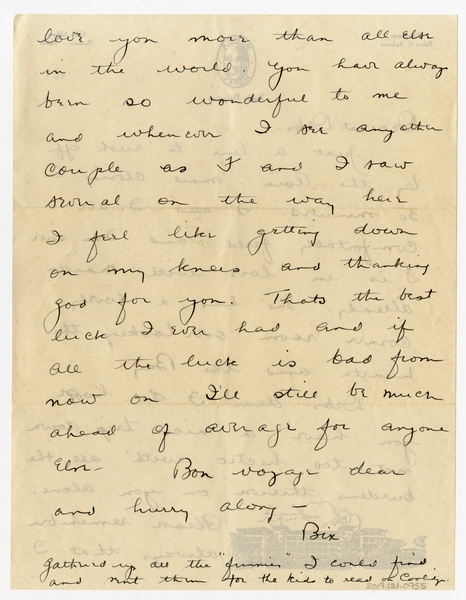 love you more than all else
in the world. You have always
been so wonderful to me
and whenever I see any other
couple as I and I saw
several on the way here
I feel like getting down
on my knees and thanking
god for you. Thats the best
luck I ever had and if
all the luck is bad from
now on I'll still be much
ahead of average for anyone
Else- Bon voyage dear
and hurry along -
Bix
Gathered up all the "funnies" I could find
and sent them for the kids to read on
2019.121.0955